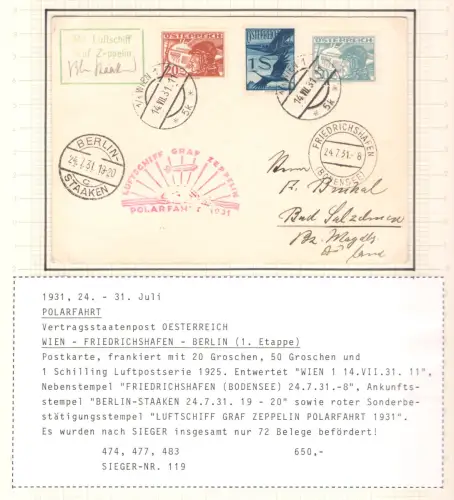 Mit Luftschiff
Graf Zeppelin
ÖSTERREICH
20
ÖSTERREICH
1S
ÖSTERREICH
1/1 WIEN 1
14.VII.31.11
* 5k *
WIEN 1
14.VII.31.11
* 5k *
BERLIN-
24.7.31.19-20
STAAKEN
LUFTSCHIFF GRAF ZEPPELIN
POLARFAHRT 1931
FRIEDRICHSHAFEN
24.7.31.-8
(BODENSEE)
Herrn
Bad Salzelmen
Bz. Magde
1931, 24. - 31. Juli
POLARFAHRT
Vertragsstaatenpost OESTERREICH
WIEN - FRIEDRICHSHAFEN - BERLIN (1. Etappe)
Postkarte, frankiert mit 20 Groschen, 50 Groschen und
1 Schilling Luftpostserie 1925. Entwertet "WIEN 1 14.VII.31. 11",
Nebenstempel "FRIEDRICHSHAFEN (BODENSEE) 24.7.31.-8", Ankunfts-
stempel "BERLIN-STAAKEN 24.7.31. 19 - 20" sowie roter Sonderbe-
stätigungsstempel "LUFTSCHIFF GRAF ZEPPELIN POLARFAHRT 1931".
Es wurden nach SIEGER insgesamt nur 72 Belege befördert!
474, 477, 483 650,-
SIEGER-NR. 119